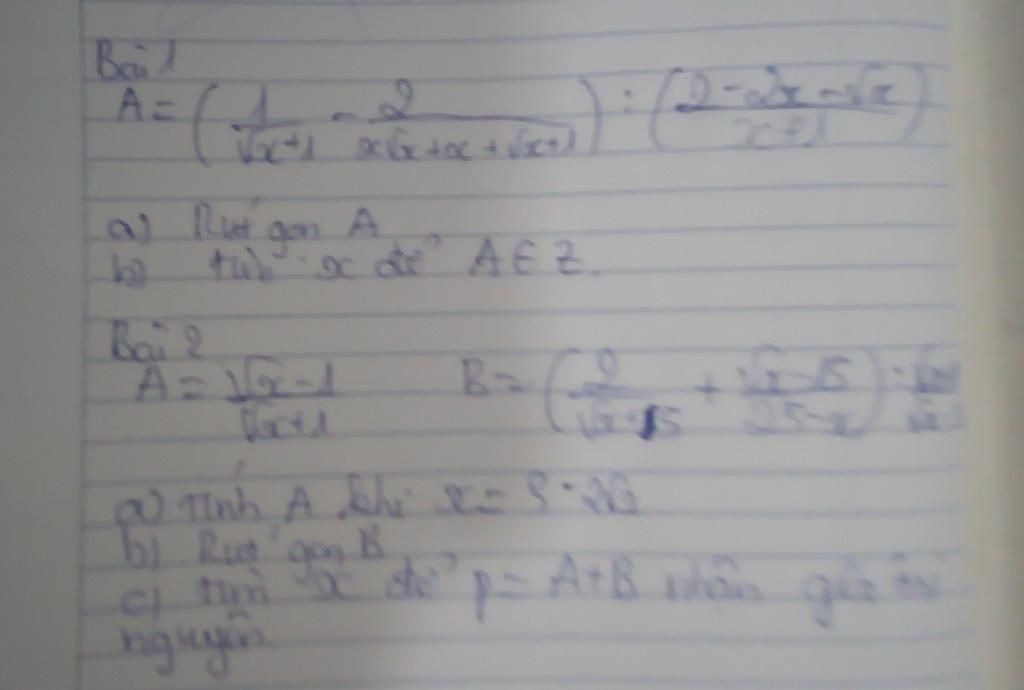 Bài 1
A = ( 1/(√x+1) - 2/(x√x+x+√x+1) ) : ( (2-2x-√x)/(x+1) )
a) Rút gọn A
b) tìm x để A ∈ Z.
Bài 2
A = (√x-1)/(√x+1) B = ( 2/(√x-5) + (√x-15)/(25-x) )
a) tính A khi x =
b) Rút gọn B
c) tìm x để p = A+B nhận giá trị
nguyên